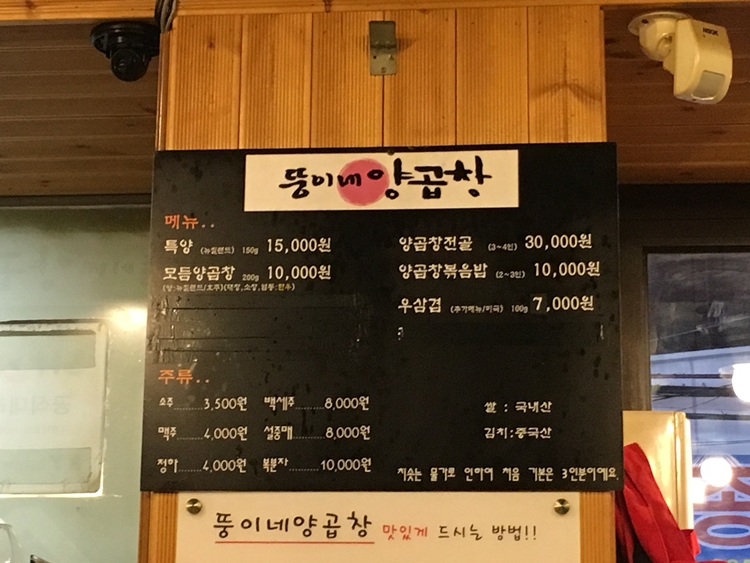 뚱이네양곱창
메뉴..
특양 (뉴질랜드) 150g 15,000원
모듬양곱창 200g 10,000원
(양:뉴질랜드/호주)(막창,소창,염통:한우)
양곱창전골 (3~4인) 30,000원
양곱창볶음밥 (2~3인) 10,000원
우삼겹 (추가메뉴/미국) 100g 7,000원
주류..
소주 3,500원 백세주 8,000원
맥주 4,000원 설중매 8,000원
청하 4,000원 복분자 10,000원
쌀 : 국내산
김치:중국산
치솟는 물가로 인하여 처음 기본은 3인분이예요.
뚱이네양곱창 맛있게 드시는 방법!!